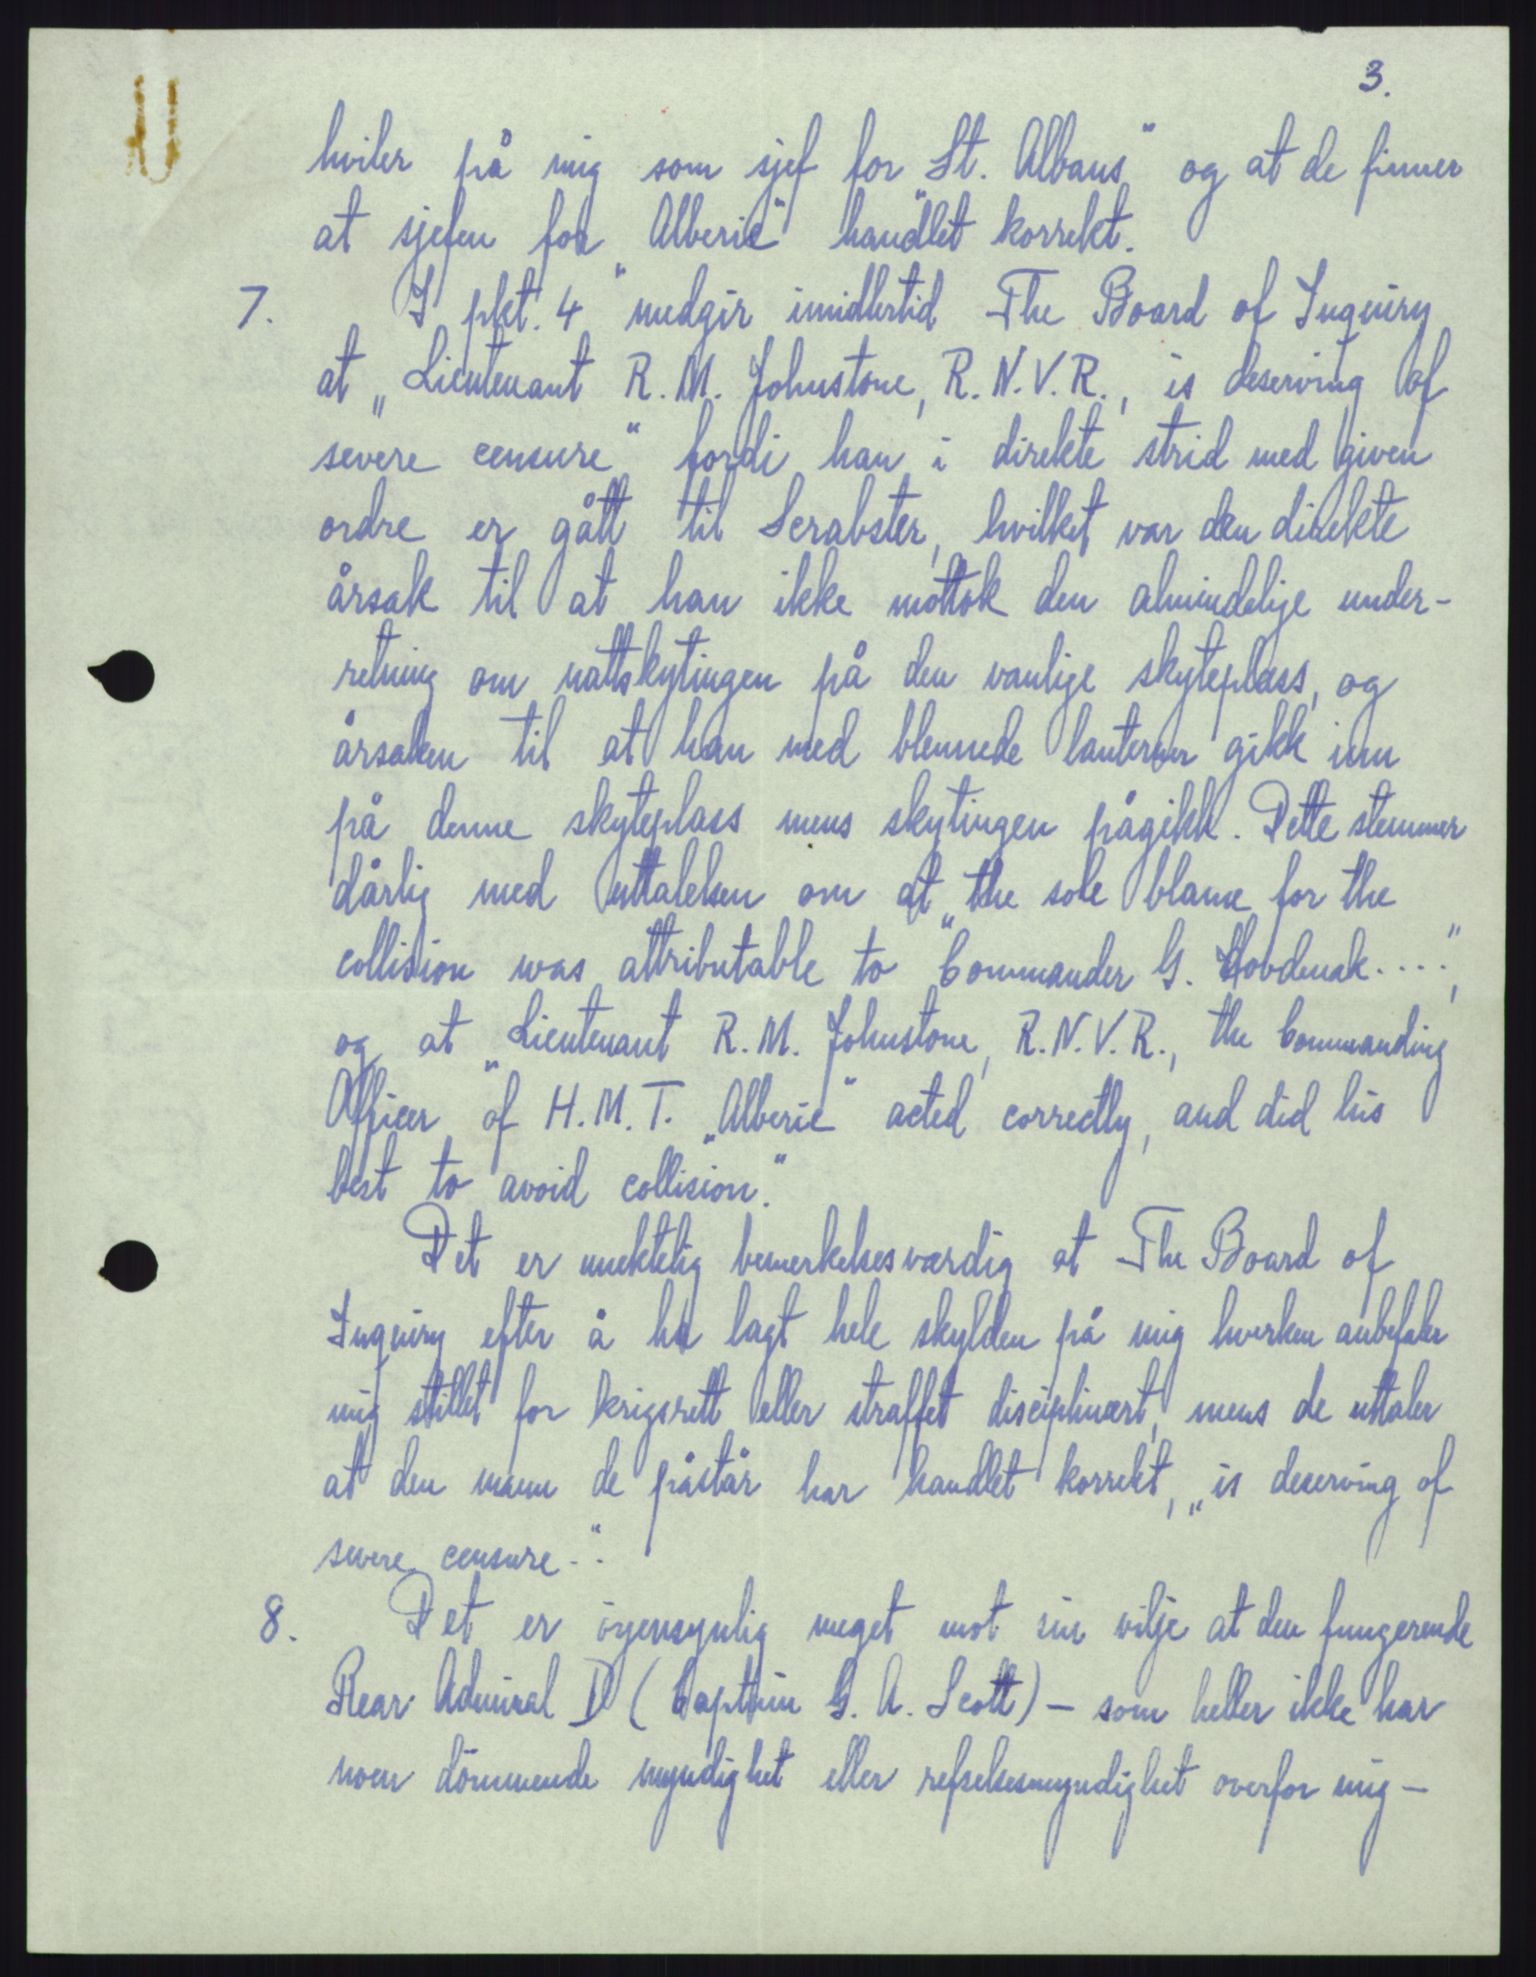 3.
hviler på mig som sjef for St. Albans" og at de finner
at sjefen for „Alberic" handlet korrekt.
7. I pkt. 4 medgir imidlertid The Board of Inquiry
at „Lieutenant R.M. Johnstone, R.N.V.R., is deserving of
severe censure" fordi han i direkte strid med given
ordre er gått til Scrabster, hvilket var den direkte
årsak til at han ikke mottok den almindelige under-
retning om nattskytingen på den vanlige skyteplass, og
årsaken til at han med blennede lanterner gikk inn
på denne skyteplass mens skytingen pågikk. Dette stemmer
dårlig med uttalelsen om at „the sole blame for the
collision was attributable to Commander G. Hovdenak....",
og at „Lieutenant R.M. Johnstone, R.N.V.R., the Commanding
Officer of H.M.T. „Alberic" acted correctly, and did his
best to avoid collision."
Det er mektelig bemerkelsesværdig at The Board of
Inquiry efter å ha lagt hele skylden på mig hverken anbefaler
mig stillet for krigsrett eller straffet disciplinært, mens de uttaler
at den mann de påstår har handlet korrekt, „is deserving of
severe censure."
8. Det er öyensynlig meget mot sin vilje at den fungerende
Rear Admiral D (Captain G. A. Scott) – som heller ikke har
noen dömmende myndighet eller refselsesmyndighet overfor mig –